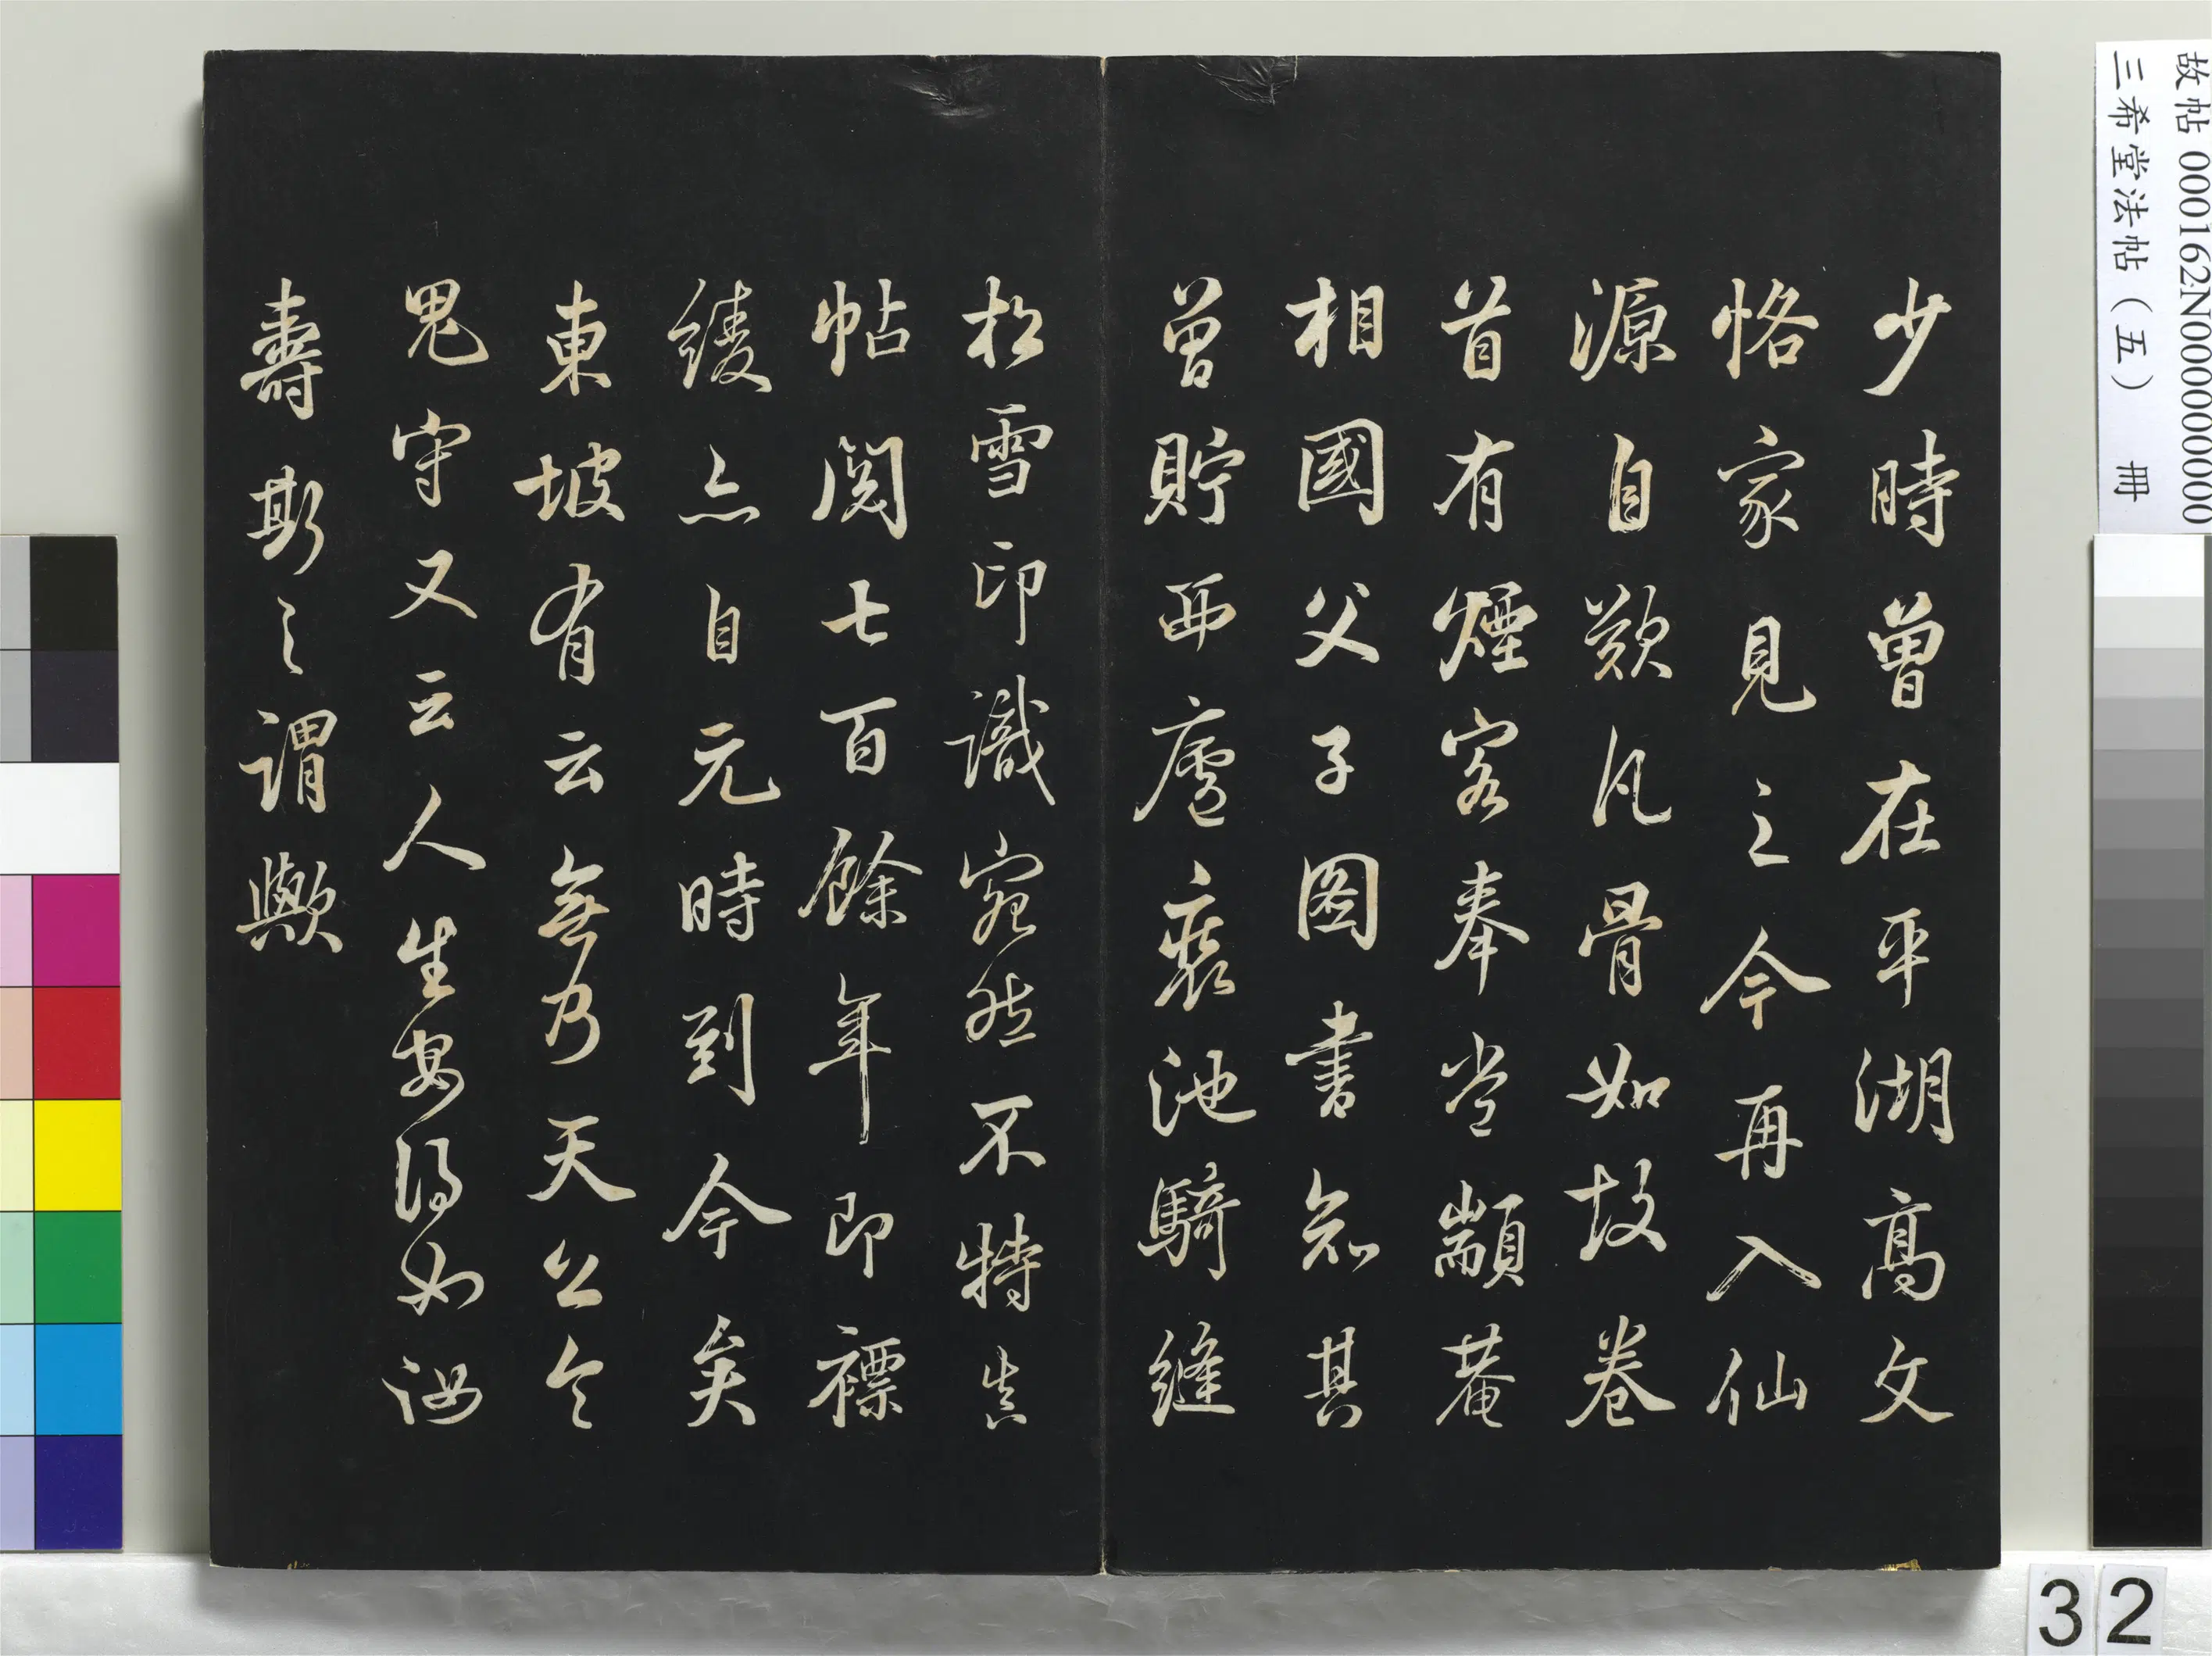 少時曾在平湖高文
恪家見之今再入仙
源自歎凡骨如故卷
首有煙客奉常顓菴
相國父子圖書知其
曾貯西廬裘池騎縫
松雪印識宛然不特真
帖閱七百餘年即褾
綾亦自元時到今矣
東坡有云無乃天公令
鬼守又云人生安得如汝
壽斯之謂歟
故帖 000162N000000000
三希堂法帖（五） 冊
32